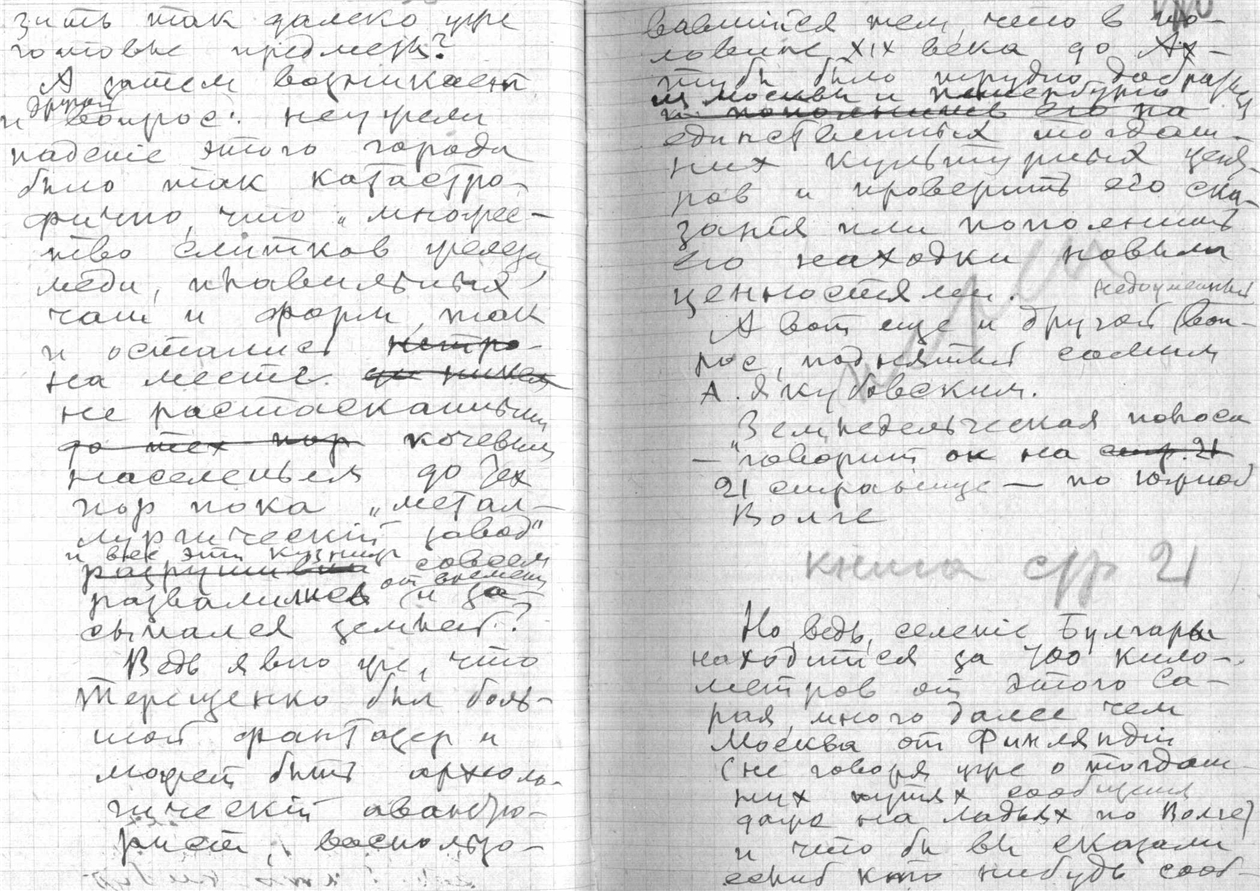 зить так далеко уже
готовые предметы?
А затем возникает
другой
и вопрос: неужели
падение этого города
было так катастро-
фично, что „множе-
тво слитков железа
меди, правильных
чаш и форм так
и остались нетро-
на месте. ни никем
не растасканными
до тех пор кочевым
населеньем до тех
пор пока „метал-
лургический завод"
и все эти кузницы совсем
разрушились
развалились от времени и за-
сыпался землей?
Ведь явно уже, что
Терещенко был боль-
шой фантазер и
может быть археоло-
гический авантю-
рист, воспользо-
вавшийся тем, что в по-
ловине XIX века до Ах-
тубы было трудно добраться
из Москвы и Петербурга
и пополнить его на
единственных тогдаш-
них культурных цент-
ров и проверить его ска-
зания или пополнить
его находки новыми
ценностями.
недоуменный
А вот еще и другой воп-
рос, поднятый самим
А. Якубовским.
„Земледельческая полоса
— говорит он на стр. 21
21 странице — по Южной
Волге
книга стр 21
Но ведь, селение Булгары
находится за 700 кило-
метров от этого Са-
рая, много далее чем
Москва от Финляндии
(не говоря уже о тогдаш-
них путях сообщения
даже на ладьях по Волге)
и что бы вы сказали
если б кто нибудь сооб